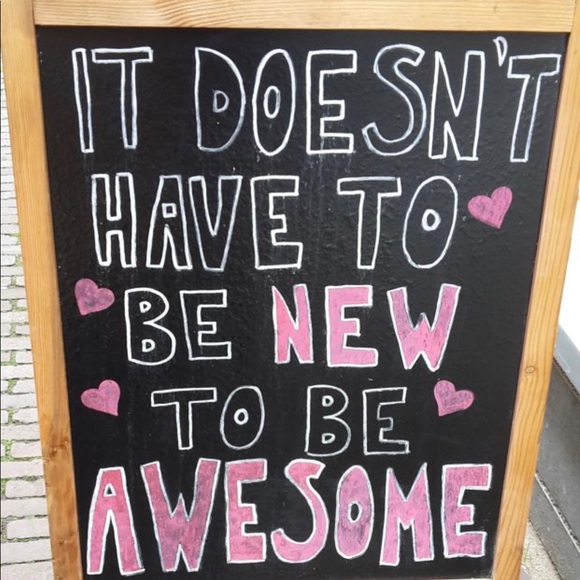 IT DOESN'T
HAVE TO
BE NEW
TO BE
AWESOME